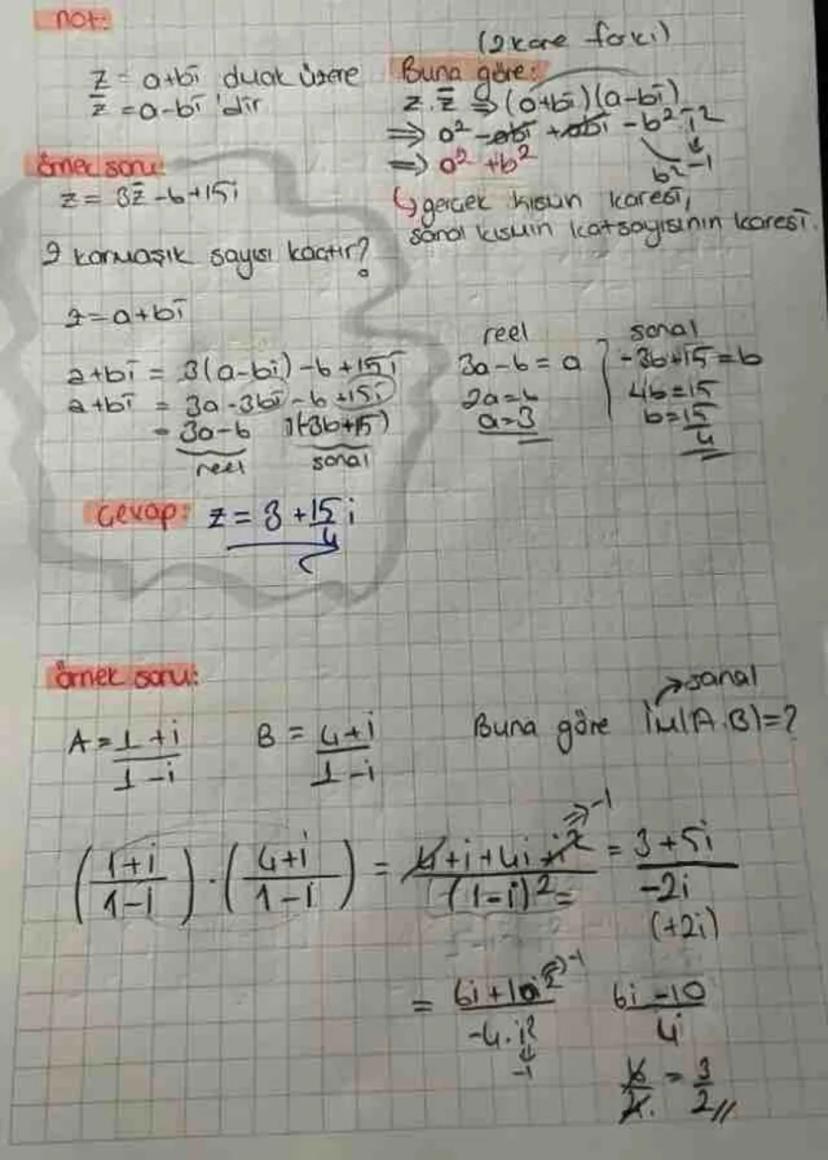 not:
z = a+bi olmak üzere
z̅ = a-bi 'dir
(2 kare farkı)
Buna göre:
z.z̅ ⇒ (a+bi)(a-bi)
⇒ a² -abi +abi -b².i²
b² -1
⇒ a² +b²
↳ gerçek kısmın karesi,
sanal kısmın katsayısının karesi.
örnek soru:
z = 3z̅ -6+15i
z karmaşık sayısı kaçtır?
z = a+bi
a+bi = 3(a-bi) -6+15i
a+bi = 3a-3bi -6+15i
= 3a-6 i(-3b+15)
reel sanal
reel
3a-6 = a
2a=6
a=3
sanal
-3b+15=b
4b=15
b=15/4
Cevap: z = 3 + 15/4 i
örnek soru:
A = 1+i/1-i B = 4+i/1-i Buna göre İm(A.B)=?
→sanal
(1+i/1-i) . (4+i/1-i) = 4+i+4i+i²/(1-i)² = 3+5i/-2i
⇒-1
(+2i)
= 6i+10i²/-4.i² 6i-10/4
⇒-1
-1
6/4 = 3/2 //